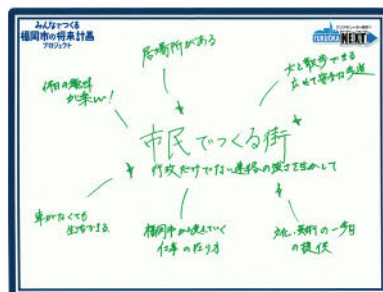 みんなでつくる
福岡市の将来計画
プロジェクト
FUKUOKA NEXT
居場所がある
休日の趣味
が楽しい!
犬と散歩できる
広くて安全な歩道
市民でつくる街
行政だけでない連携の強さを生かして
車がなくても
生活できる
福岡市から変えていく
仕事の在り方
文化・芸術の一歩目
の提供